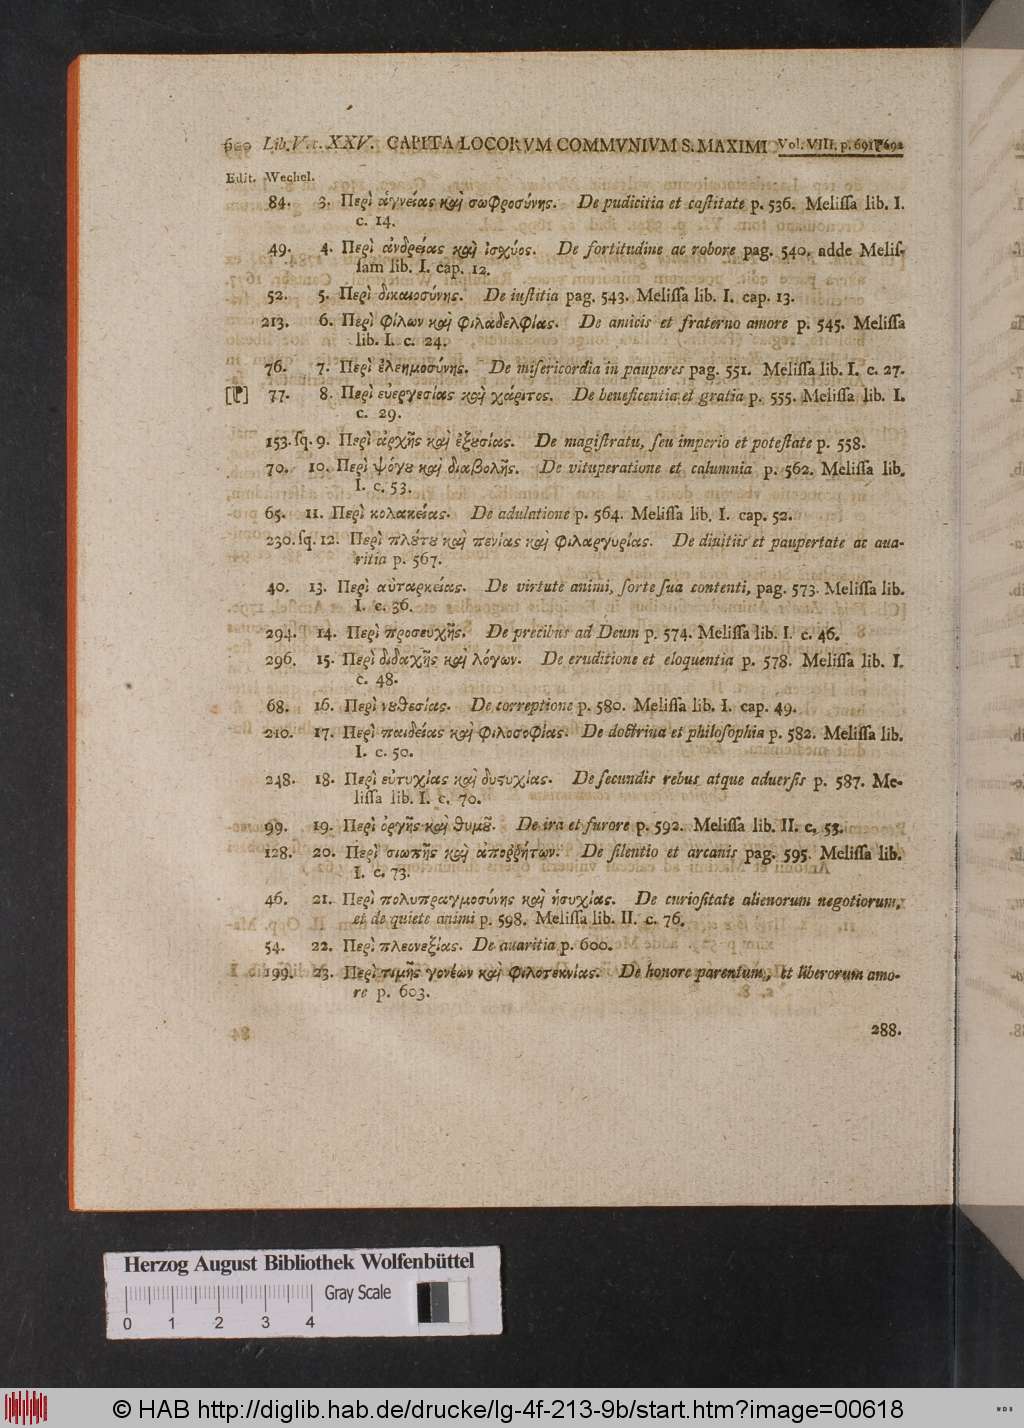 Lib. V. c. XXV. CAPITA LOCORVM COMMVNIVM S. MAXIMI Vol. VIII, p. 691 692
Edit. Wechel.
84. 3. Περὶ ἁγνείας καὶ σωφροσύνης. De pudicitia et caſtitate p. 536. Meliſſa lib. I.
c. 14.
49. 4. Περὶ ἀνδρείας καὶ ἰσχύος. De fortitudine ac robore pag. 540. adde Meliſ-
ſam lib. I. cap. 12.
52. 5. Περὶ δικαιοσύνης. De iuſtitia pag. 543. Meliſſa lib. I. cap. 13.
213. 6. Περὶ φίλων καὶ φιλαδελφίας. De amicis et fraterno amore p. 545. Meliſſa
lib. I. c. 24.
76. 7. Περὶ ἐλεημοσύνης. De miſericordia in pauperes pag. 551. Meliſſa lib. I. c. 27.
77. 8. Περὶ εὐεργεσίας καὶ χάριτος. De beneficentia et gratia p. 555. Meliſſa lib. I.
c. 29.
153. ſq. 9. Περὶ ἀρχῆς καὶ ἐξȣσίας. De magiſtratu, ſeu imperio et poteſtate p. 558.
70. 10. Περὶ ψόγȣ καὶ διαβολῆς. De vituperatione et calumnia p. 562. Meliſſa lib.
I. c. 53.
65. 11. Περὶ κολακείας. De adulatione p. 564. Meliſſa lib. I. cap. 52.
230. ſq. 12. Περὶ πλȣ́τȣ καὶ πενίας καὶ φιλαργυρίας. De diuitiis et paupertate ac aua-
ritia p. 567.
40. 13. Περὶ αὐταρκείας. De virtute animi, ſorte ſua contenti, pag. 573. Meliſſa lib.
I. c. 36.
294. 14. Περὶ προσευχῆς. De precibus ad Deum p. 574. Meliſſa lib. I. c. 46.
296. 15. Περὶ διδαχῆς καὶ λόγων. De eruditione et eloquentia p. 578. Meliſſa lib. I.
c. 48.
68. 16. Περὶ νȣθεσίας. De correptione p. 580. Meliſſa lib. I. cap. 49.
210. 17. Περὶ παιδείας καὶ φιλοσοφίας. De doctrina et philoſophia p. 582. Meliſſa lib.
I. c. 50.
248. 18. Περὶ εὐτυχίας καὶ δυςυχίας. De ſecundis rebus atque aduerſis p. 587. Me-
liſſa lib. I. c. 70.
99. 19. Περὶ ὀργῆς καὶ θυμȣ͂. De ira et furore p. 592. Meliſſa lib. II. c. 53.
128. 20. Περὶ σιωπῆς καὶ ἀποῤῥήτων. De ſilentio et arcanis pag. 595. Meliſſa lib.
I. c. 73.
46. 21. Περὶ πολυπραγμοσύνης καὶ ἡσυχίας. De curioſitate alienorum negotiorum,
et de quiete animi p. 598. Meliſſa lib. II. c. 76.
54. 22. Περὶ πλεονεξίας. De auaritia p. 600.
199. 23. Περὶ τιμῆς γονέων καὶ φιλοτεκνίας. De honore parentum, et liberorum amo-
re p. 603.
288.
Herzog August Bibliothek Wolfenbüttel
Gray Scale
0 1 2 3 4
© HAB http://diglib.hab.de/drucke/lg-4f-213-9b/start.htm?image=00618